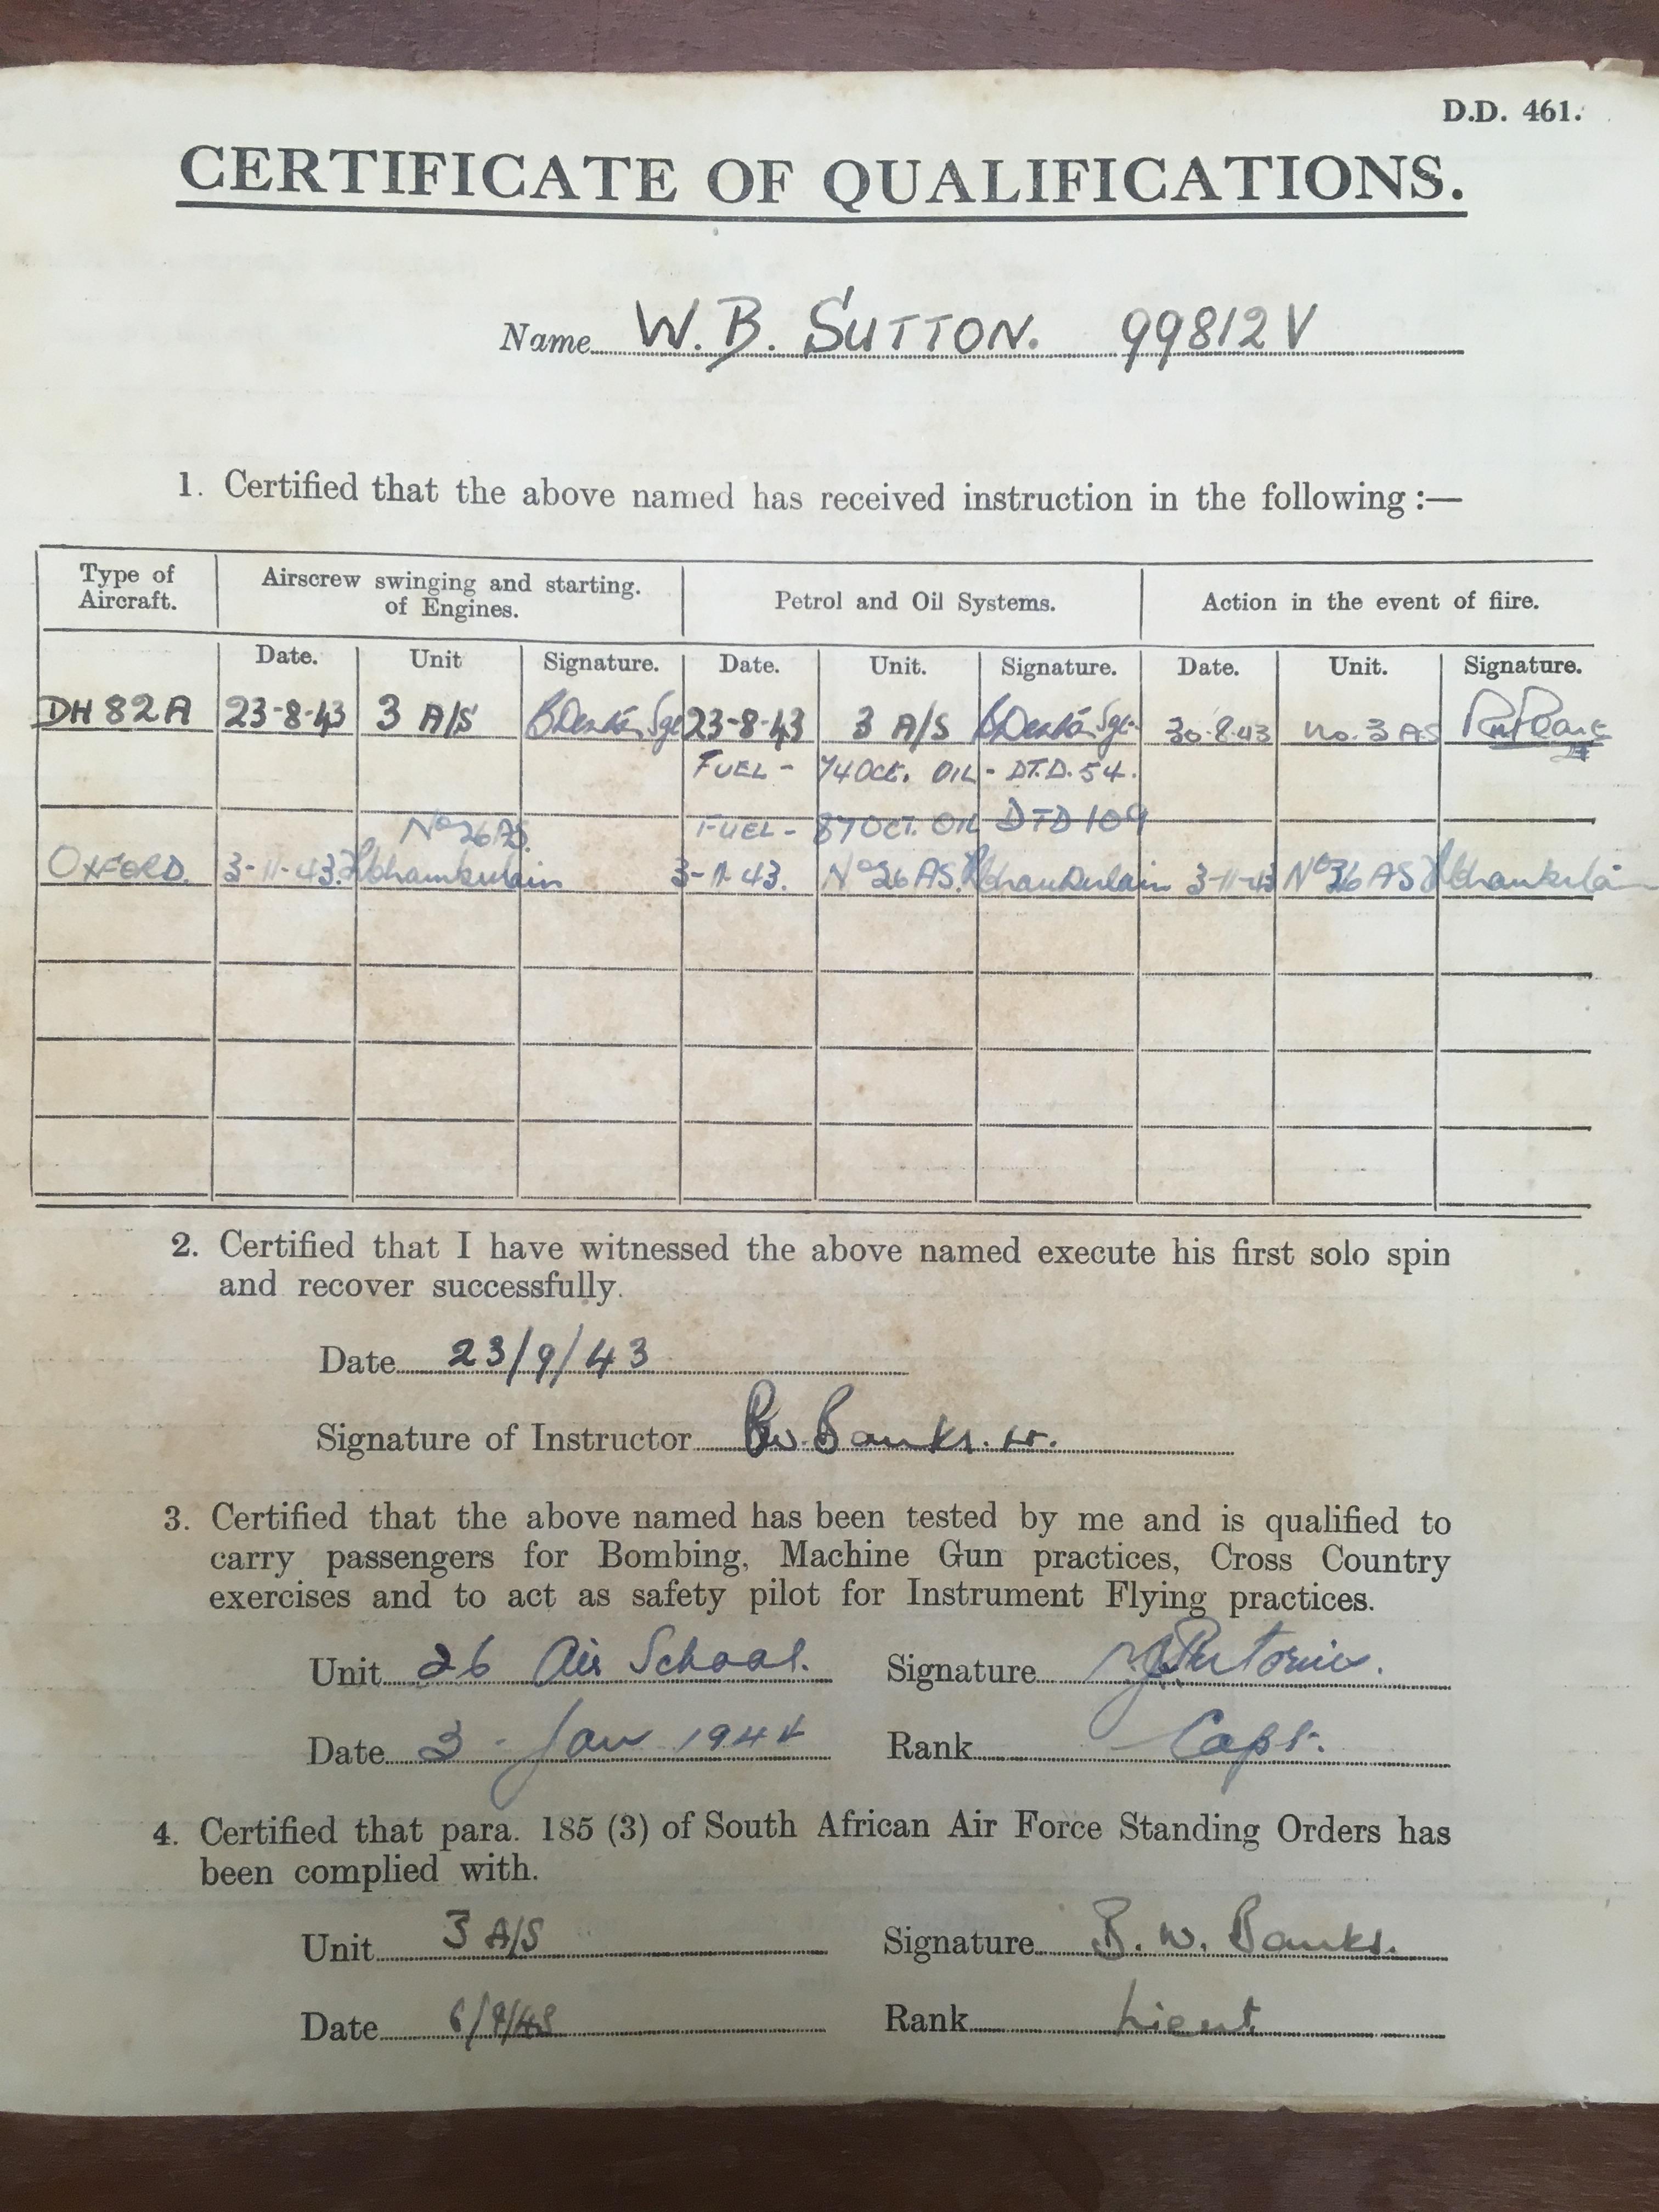 D.D. 461.
CERTIFICATE OF QUALIFICATIONS.
Name W. B. SUTTON. 99812 V
1. Certified that the above named has received instruction in the following :—
Type of Aircraft. Airscrew swinging and starting. of Engines. Petrol and Oil Systems. Action in the event of fiire.
Date. Unit Signature. Date. Unit. Signature. Date. Unit. Signature.
DH 82A 23-8-43 3 A/S Sgt 23-8-43 3 A/S Sgt. 30-8-43 No. 3 AS
FUEL - 74 OCT. OIL - D.T.D. 54.
No 26 AS. FUEL - 87 OCT. OIL DTD 109
OXFORD. 3-11-43. Chamberlain 3-11-43. No 26 AS. Chamberlain 3-11-43 No 26 AS Chamberlain
2. Certified that I have witnessed the above named execute his first solo spin
and recover successfully.
Date 23/9/43
Signature of Instructor B.W. Banks. Lt.
3. Certified that the above named has been tested by me and is qualified to
carry passengers for Bombing, Machine Gun practices, Cross Country
exercises and to act as safety pilot for Instrument Flying practices.
Unit 26 Air School. Signature
Date 3 - Jan 1944 Rank Capt.
4. Certified that para. 185 (3) of South African Air Force Standing Orders has
been complied with.
Unit 3 A/S Signature B. W. Banks.
Date 6/9/43 Rank Lieut.